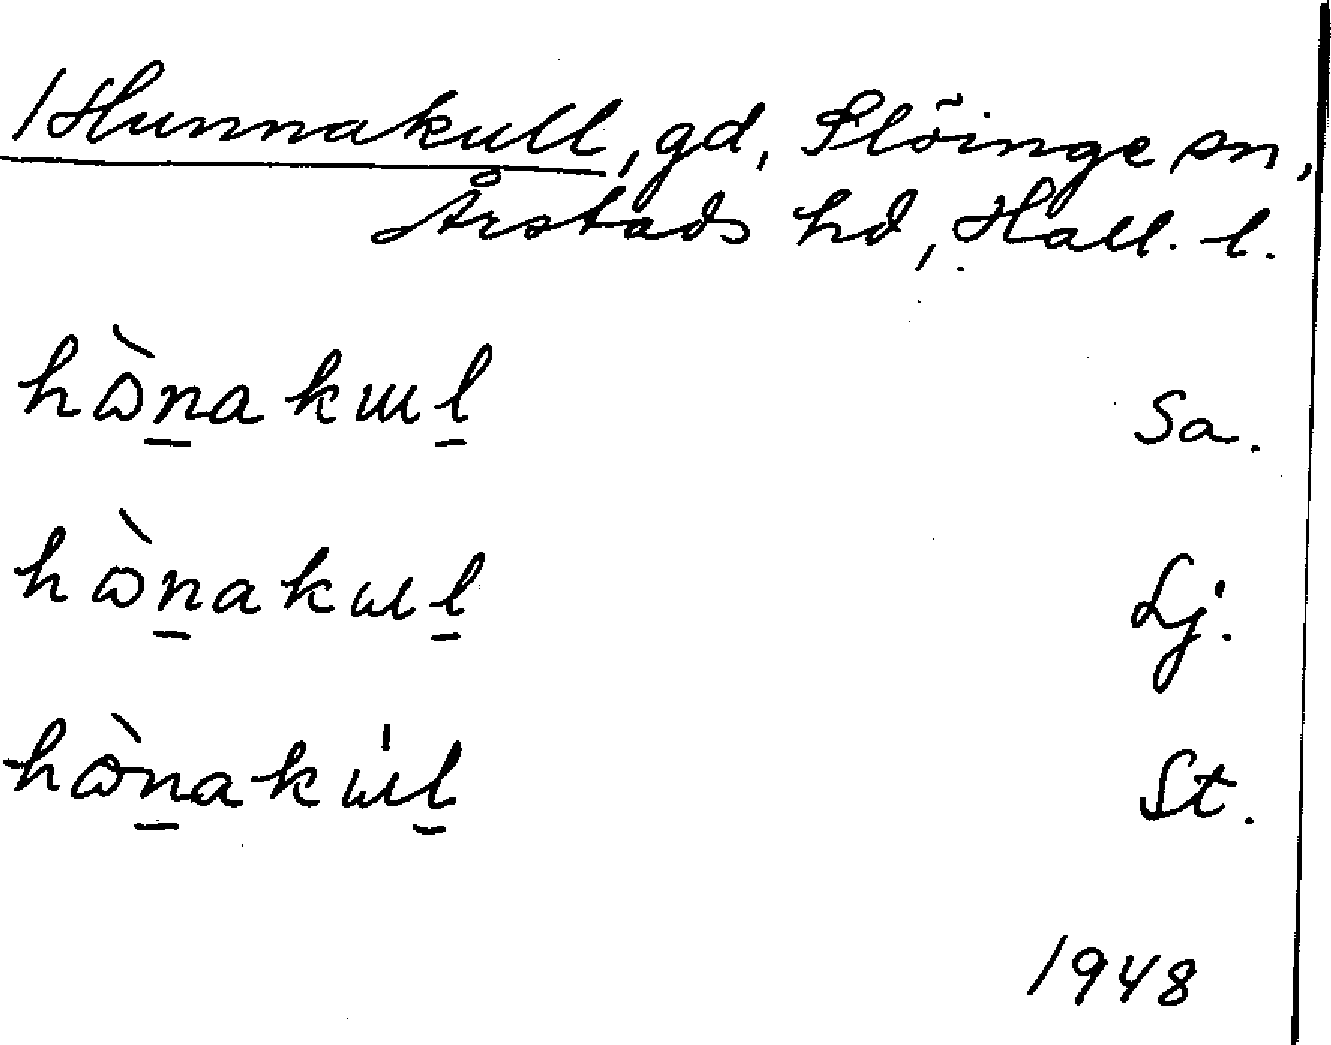 Hunnakull, gd, Slöinge sn,
Årstads hd, Hall. l.
hɷ̀n̲akɯl̲ Sa.
hɷ̀n̲akɯl̲ Lj.
hɷ̀n̲akɯ̍l̲ St.
1948